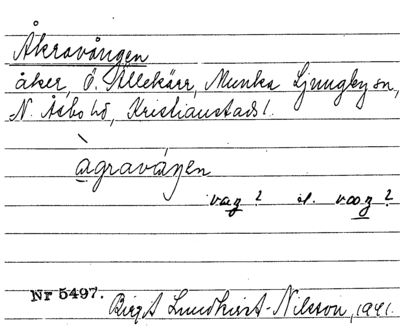 Åkravången
åker, Ö. Allekärr, Munka Ljungby sn,
N. Åsbo hd, Kristianstads l.
àgraváŋen
vag? el. voog?
Nr 5497.
Birgit Lundkvist-Nilsson, 1941.